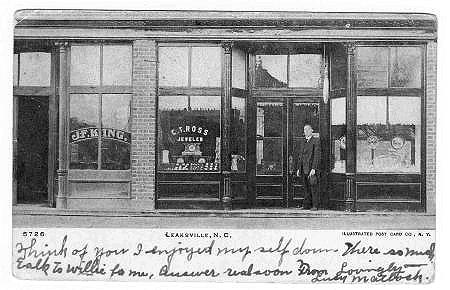 J.F. KING
C.T. ROSS
JEWELER
5726
LEAKSVILLE, N. C.
ILLUSTRATED POST CARD CO., N. Y.
Think of you I enjoyed my self down There so much
Talk to Willie for me, Answer real soon From Lovingly
Lucy Matlock.